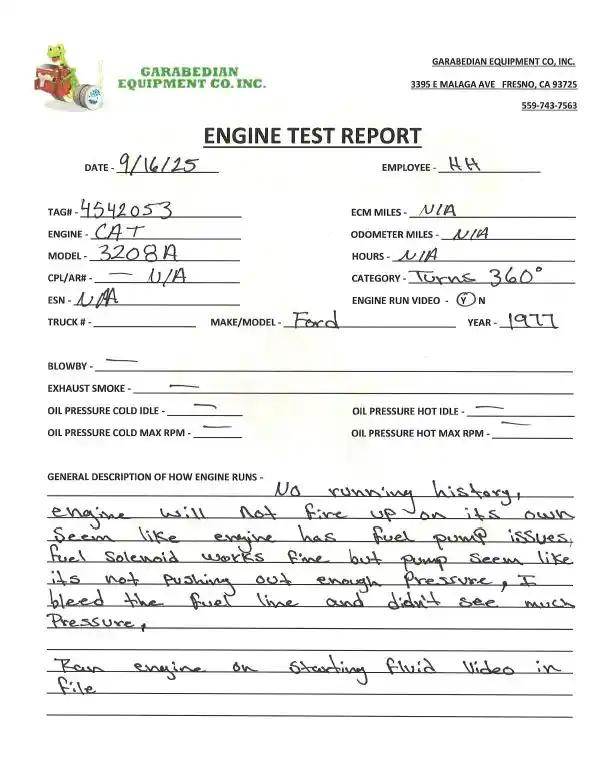 GARABEDIAN
EQUIPMENT CO. INC.
GARABEDIAN EQUIPMENT CO, INC.
3395 E MALAGA AVE FRESNO, CA 93725
559-743-7563
ENGINE TEST REPORT
DATE - 9/16/25 EMPLOYEE - HH
TAG# - 4542053 ECM MILES - N/A
ENGINE - CAT ODOMETER MILES - N/A
MODEL - 3208A HOURS - N/A
CPL/AR# - — N/A CATEGORY - Turns 360°
ESN - N/A ENGINE RUN VIDEO - Y N
TRUCK # - MAKE/MODEL - Ford YEAR - 1977
BLOWBY - —
EXHAUST SMOKE - —
OIL PRESSURE COLD IDLE - — OIL PRESSURE HOT IDLE - —
OIL PRESSURE COLD MAX RPM - — OIL PRESSURE HOT MAX RPM - —
GENERAL DESCRIPTION OF HOW ENGINE RUNS -
No running history,
engine will not fire up on its own
Seem like engine has fuel pump issues,
fuel Solenoid works fine but pump seem like
its not pushing out enough Pressure, I
bleed the fuel line and didn't see much
Pressure,
Ran engine on Starting fluid Video in
file